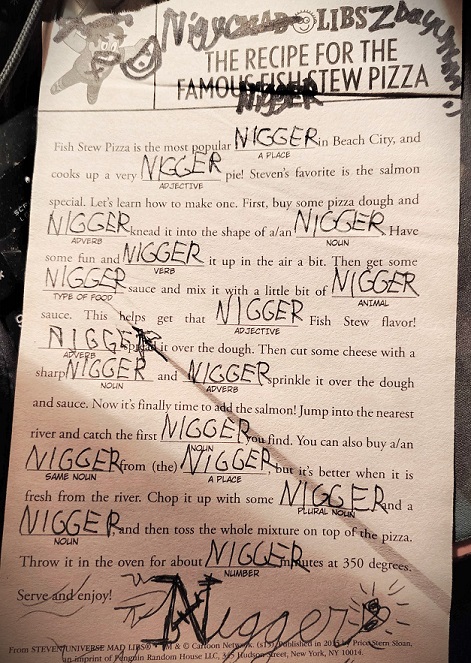 Nigga MAD LIBS Zbaymm :)
THE RECIPE FOR THE
FAMOUS FISH STEW PIZZA
NIGGER
Fish Stew Pizza is the most popular NIGGER in Beach City, and
A PLACE
cooks up a very NIGGER pie! Steven's favorite is the salmon
ADJECTIVE
special. Let's learn how to make one. First, buy some pizza dough and
NIGGER knead it into the shape of a/an NIGGER. Have
ADVERB NOUN
some fun and NIGGER it up in the air a bit. Then get some
VERB
NIGGER sauce and mix it with a little bit of NIGGER
TYPE OF FOOD ANIMAL
sauce. This helps get that NIGGER Fish Stew flavor!
ADJECTIVE
NIGGER spread it over the dough. Then cut some cheese with a
ADVERB
sharp NIGGER and NIGGER sprinkle it over the dough
NOUN ADVERB
and sauce. Now it's finally time to add the salmon! Jump into the nearest
river and catch the first NIGGER you find. You can also buy a/an
NOUN
NIGGER from (the) NIGGER, but it's better when it is
SAME NOUN A PLACE
fresh from the river. Chop it up with some NIGGER and a
PLURAL NOUN
NIGGER, and then toss the whole mixture on top of the pizza.
NOUN
Throw it in the oven for about NIGGER minutes at 350 degrees.
NUMBER
Serve and enjoy!
Nigger
From STEVEN UNIVERSE MAD LIBS® • TM & © Cartoon Network. (s15) Published in 2015 by Price Stern Sloan,
an imprint of Penguin Random House LLC, 345 Hudson Street, New York, NY 10014.